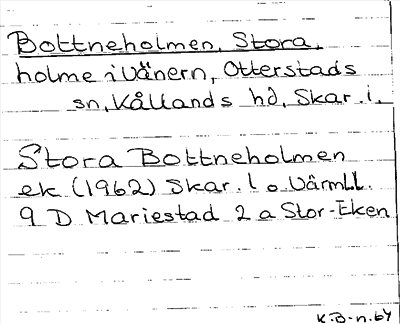 Bottneholmen, Stora,
holme i Vänern, Otterstads
sn, Kållands hd, Skar. l.
Stora Bottneholmen
ek (1962) Skar. l o Värml l.
9 D Mariestad 2 a Stor-Eken
K.B-n. 64